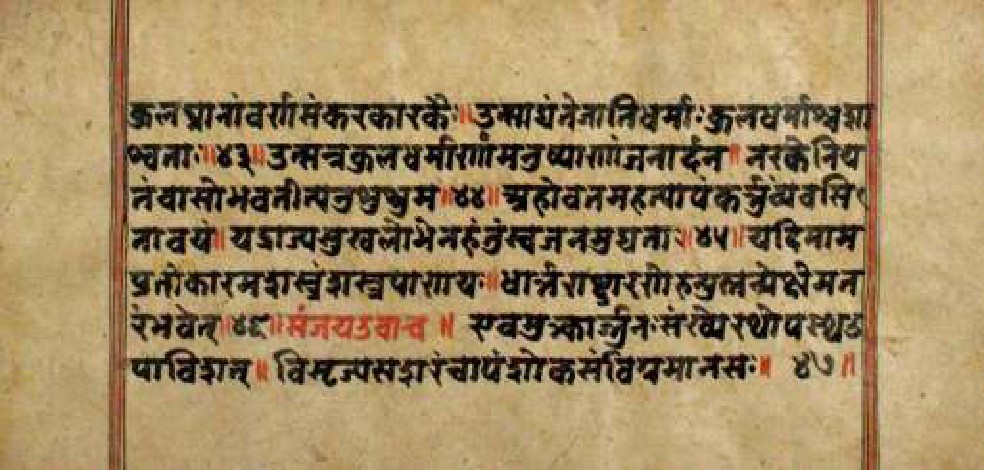 कुलघ्नानांवर्णसंकरकारकैः॥उत्साद्यंतेजातिधर्माःकुलधर्माश्चशा
श्वताः॥४३॥उत्सन्नकुलधर्माणांमनुष्याणांजनार्दन॥नरकेनिय
तंवासोभवतीत्यनुशुश्रुम॥४४॥अहोवतमहत्पापंकर्तुंव्यवसि
तावयं॥यद्राज्यसुखलोभेनहंतुंस्वजनमुद्यताः॥४५॥यदिमाम
प्रतीकारमशस्त्रंशस्त्रपाणयः॥धार्तराष्ट्रारणेहन्युस्तन्मेक्षेमत
रंभवेत्॥४६॥संजयउवाच॥ एवमुक्त्वार्जुनःसंख्येरथोपस्थउ
पाविशत्॥विसृज्यसशरंचापंशोकसंविग्नमानसः॥ ४७॥